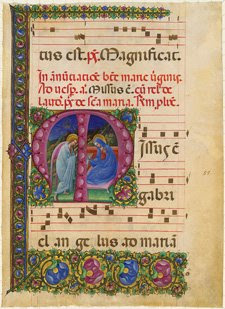 tus est. ps. Magnificat.
In annūciatiōe bēte marie v̄ginis.
Ad vesp. a. Missus ē. cū rel. de
laud. ps. de sca maria. Rm. plixē.
M issus ē
gabri
el an ge lus ad mariā